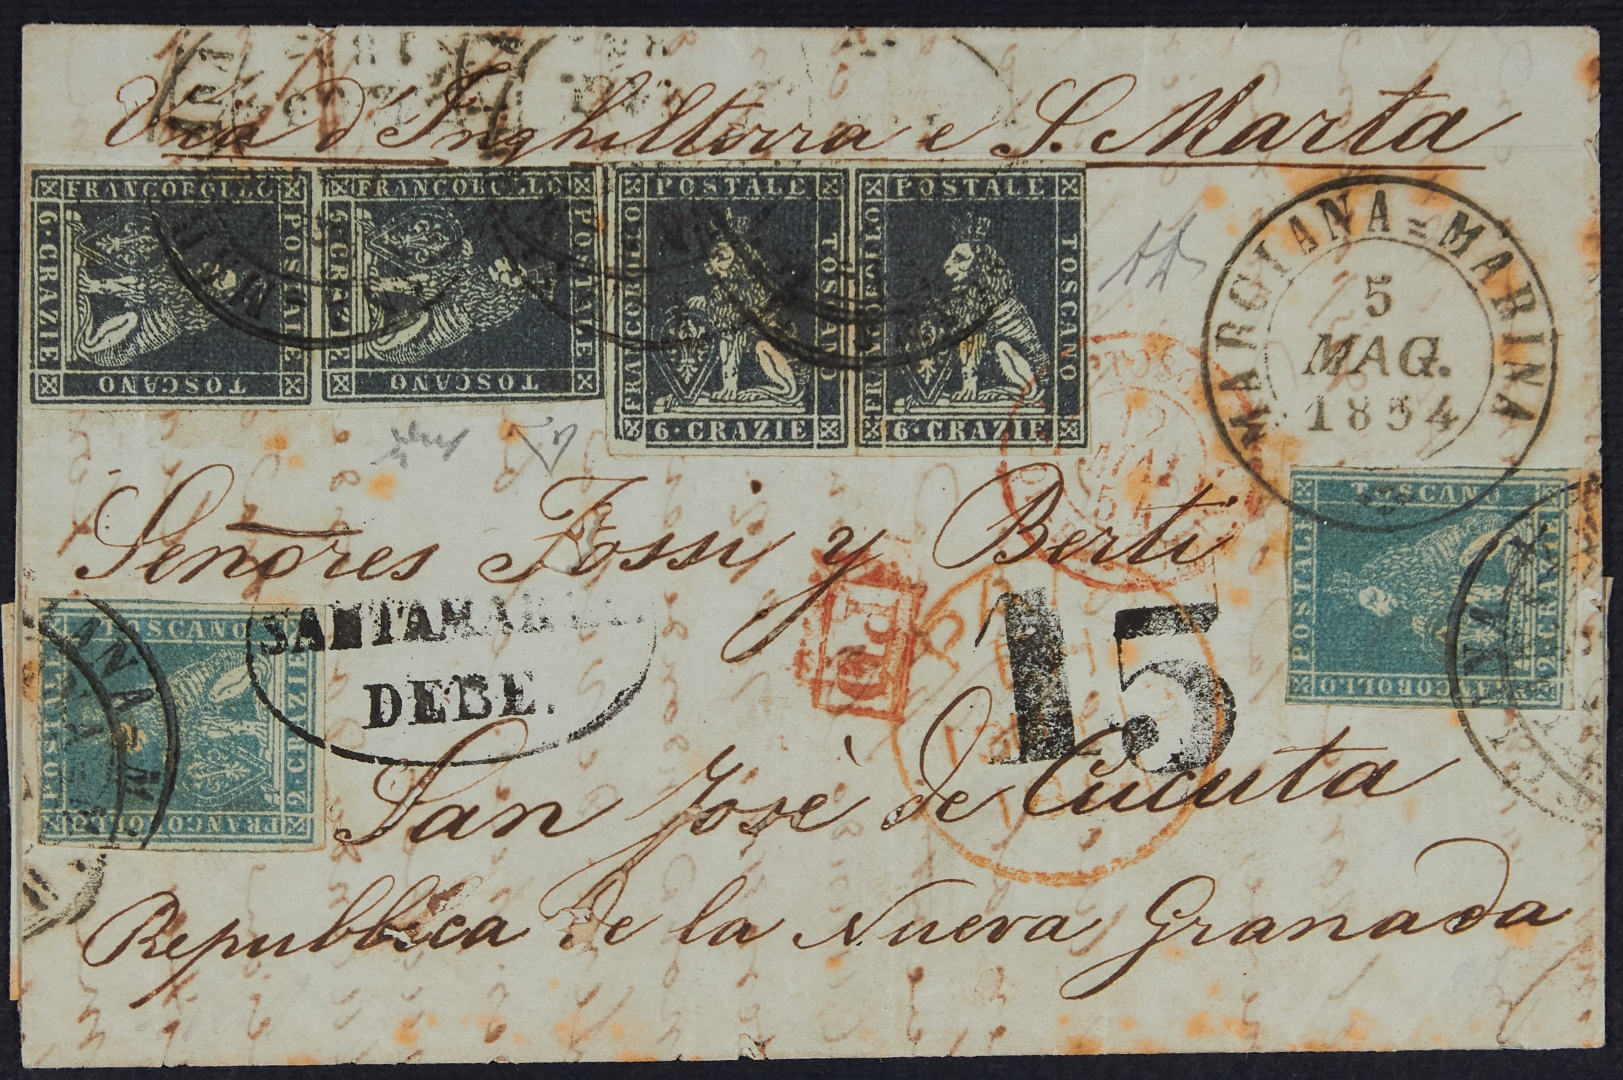 Via d'Inghilterra e S. Marta
FRANCOBOLLO POSTALE TOSCANO 6·CRAZIE
FRANCOBOLLO POSTALE TOSCANO 6·CRAZIE
FRANCOBOLLO POSTALE TOSCANO 6·CRAZIE
FRANCOBOLLO POSTALE TOSCANO 6·CRAZIE
MARCIANA=MARINA
5
MAG.
1854
12
MAI
54
Señores Fossi y Berti
FRANCOBOLLO POSTALE TOSCANO 2·CRAZIE
FRANCOBOLLO POSTALE TOSCANO 2·CRAZIE
SANTAMARTA
DEBE.
PD
15
San José de Cucuta
Repubblica de la Nueva Granada